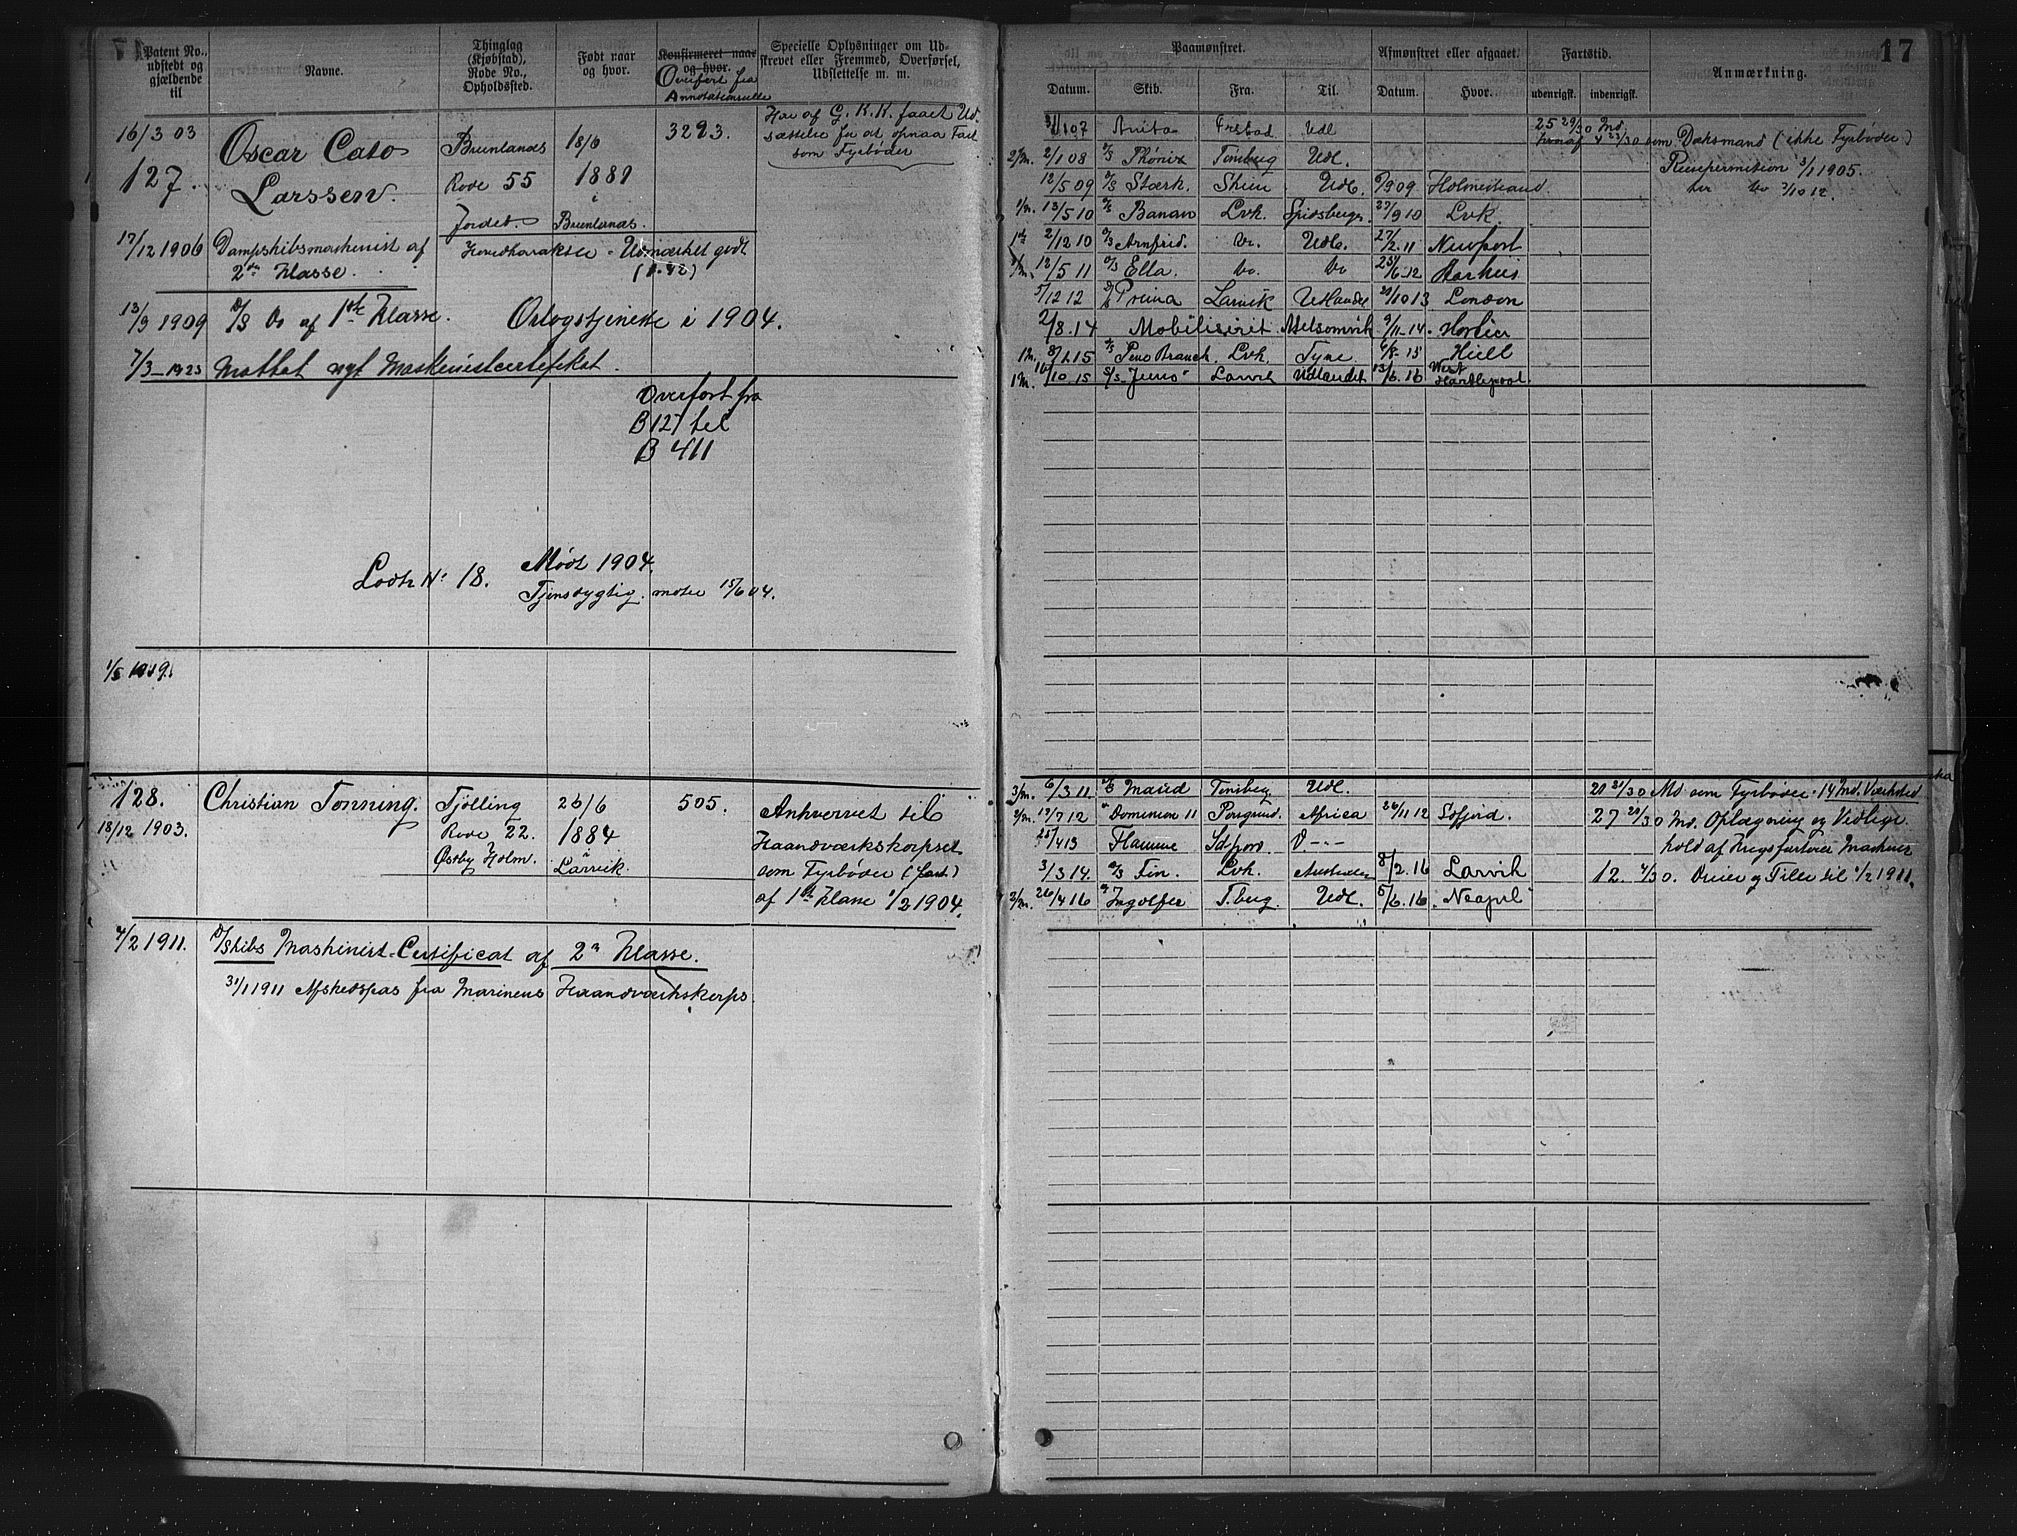 17
Patent No., udstedt og gjældende til
Navne.
Thinglag (Kjøbstad), Rode No., Opholdssted.
Født naar og hvor.
Konfirmeret naar og hvor.
Overført fra Annotationsrulle
Specielle Oplysninger om Udstrevet eller Fremmed, Overførsel, Udslettelse m. m.
Paamønstret.
Afmønstret eller afgaaet.
Fartstid.
Anmærkning.
Datum. Skib. Fra. Til. Datum. Hvor. udenrigst. indenrigst.
16/3 03
127.
Oscar Cato
Larssen.
Brunlanæs
Rode 55
Jordet.
18/6
1881
i
Brunlanæs.
3293.
Har af G. K. K. faaet Ud-
sættelse for at opnaa Fart
som Fyrbøder
17/12 1906 Dampskibsmaskinist af
2den Klasse.
Hovedkarakter - Udmærket godt
13/9 1909 D/S Do af 1ste Klasse. Orlogstjeneste i 1904.
7/3-1923 Mottat nyt Maskinistcertefikat.
Overført fra
B 127 til
B 411
Lodtr No 18. Mødt 1904.
Tjenstdygtig. møder 15/6 04.
1/5 1919.
128.
18/12 1903.
Christian Tonning.
Tjølling
Rode 22.
Østby Holm.
26/6
1884
i
Larvik.
505.
Anhvervet til
Haandværkskorpset
som Fyrbøder (fast)
af 1ste Klasse 1/2 1904.
4/2 1911. D/Skibs Maskinist-Certificat af 2n Klasse.
31/1 1911 Afskedspas fra Marinens Haandværkskorps.
3/1 07 Anita Frstad Udl 25 29/30 Md.
hvoraf 4 23/30 som Dæksmand (ikke Fyrbøder)
2/m. 2/1 08 D/S Phönix Tønsberg Udl.
Reisepermission 3/1 1905.
12/5 09 D/S Stærk. Skien Udl. 6/9 09 Holmestrand.
do do 2/10 12.
1/m. 13/5 10 D/S Banan Lvk. Spidsbergen 27/9 10 Lvk.
2/12 10 D/S Arnfrid. do. Udl. 27/2.11 Newport
1/m. 12/5 11 D/S Ella. do. do 25/6-12 Aarhus
5/12 12 D/S Prima Larvik Utlandet 20/10 13 London
2/8.14 Mobiliseret. Melsomvik 9/11-14. Horten
1m. 8/1.15 D/S Peno Branch Lvk. Tyne. 6/8-15 Hull
1m. 16/10.15 D/S "Juno" Larvik Udlandet 13/6.16 West Hartlepool.
3/m. 6/3 11. D/S Maud Tønsberg Udl. 21 21/30 Md som Fyrbøder. 14 Md. Værksted
2/m. 17/7 12 " Dominion 11 Porsgrund. Africa 26/11 12 Søfjord. 27 28/30 Md. Oplægning og Vedlige
25/4 13 Flamme Sdfjord. hold af Krigsfartøier Maskiner
3/3 14. D/S Fin. Lvk. Australien 8/2.16 Larvik 12. 4/30. Dreier og Filer til 1/2 1911.
2/m. 26/4 16 " Ingolfer T.berg. Udl. 5/6.16. Neapel